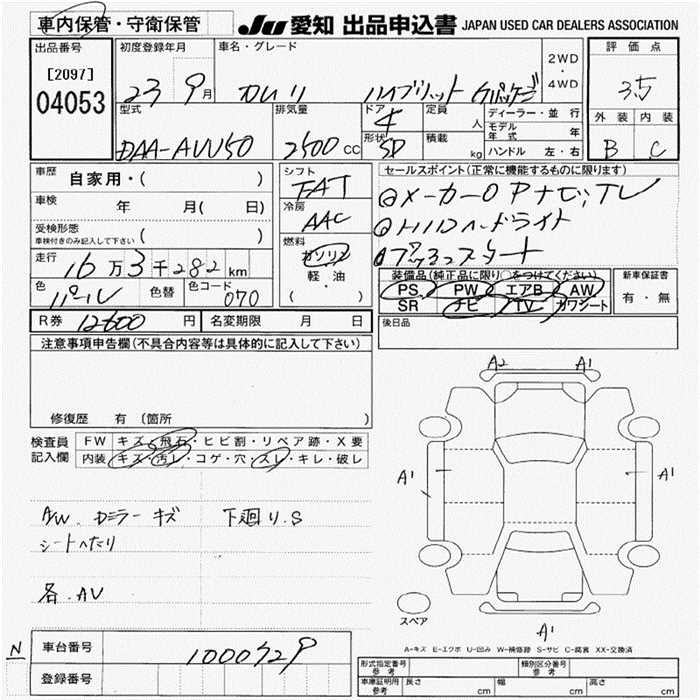 車内保管・守衛保管
JU 愛知 出品申込書 JAPAN USED CAR DEALERS ASSOCIATION
出品番号 [2097] 04053
初度登録年月 23 9月
車名・グレード カムリ ハイブリット Gパッケージ
2WD・4WD
評価点 3.5
外装 内装
B C
型式 DAA-AVV50
排気量 2500 CC
ドア 4
形状 SD
定員 人
積載 kg
ディーラー・並行
モデル年式 年
ハンドル 左・右
車歴 自家用・( )
車検 年 月( 日)
受検形態 車検付きのみ記入して下さい ( )
走行 16万3千282km
色 パール 色替 色コード 070
R券 12600円 名変期限 月 日
シフト FAT
冷房 AAC
燃料 ガソリン
軽・油
( ・ )
セールスポイント(正常に機能するものに限ります)
◎メーカーOPナビ,TV
◎HIDヘッドライト
◎プッシュスタート
装備品(純正品に限り○をつけてください)
PS PW エアB AW
SR ナビ TV カワシート
新車保証書
有・無
後日品
注意事項申告欄(不具合内容等は具体的に記入して下さい)
修復歴 有 〔箇所
検査員記入欄
FW キズ・飛石・ヒビ割・リペア跡・X要
内装 キズ・汚レ・コゲ・穴・スレ・キレ・破レ
A/W. Dミラー キズ 下廻り.S
シートへたり
各.AV
A2 A1
A1 A1
A1
スペア
A-キズ E-エクボ U-凹み W-補修跡 S-サビ C-腐食 XX-交換済
N
車台番号 1000729
登録番号
形式指定番号 参考
類別区分番号 参考
車庫証明用 参考 長さ cm 幅 cm 高さ cm